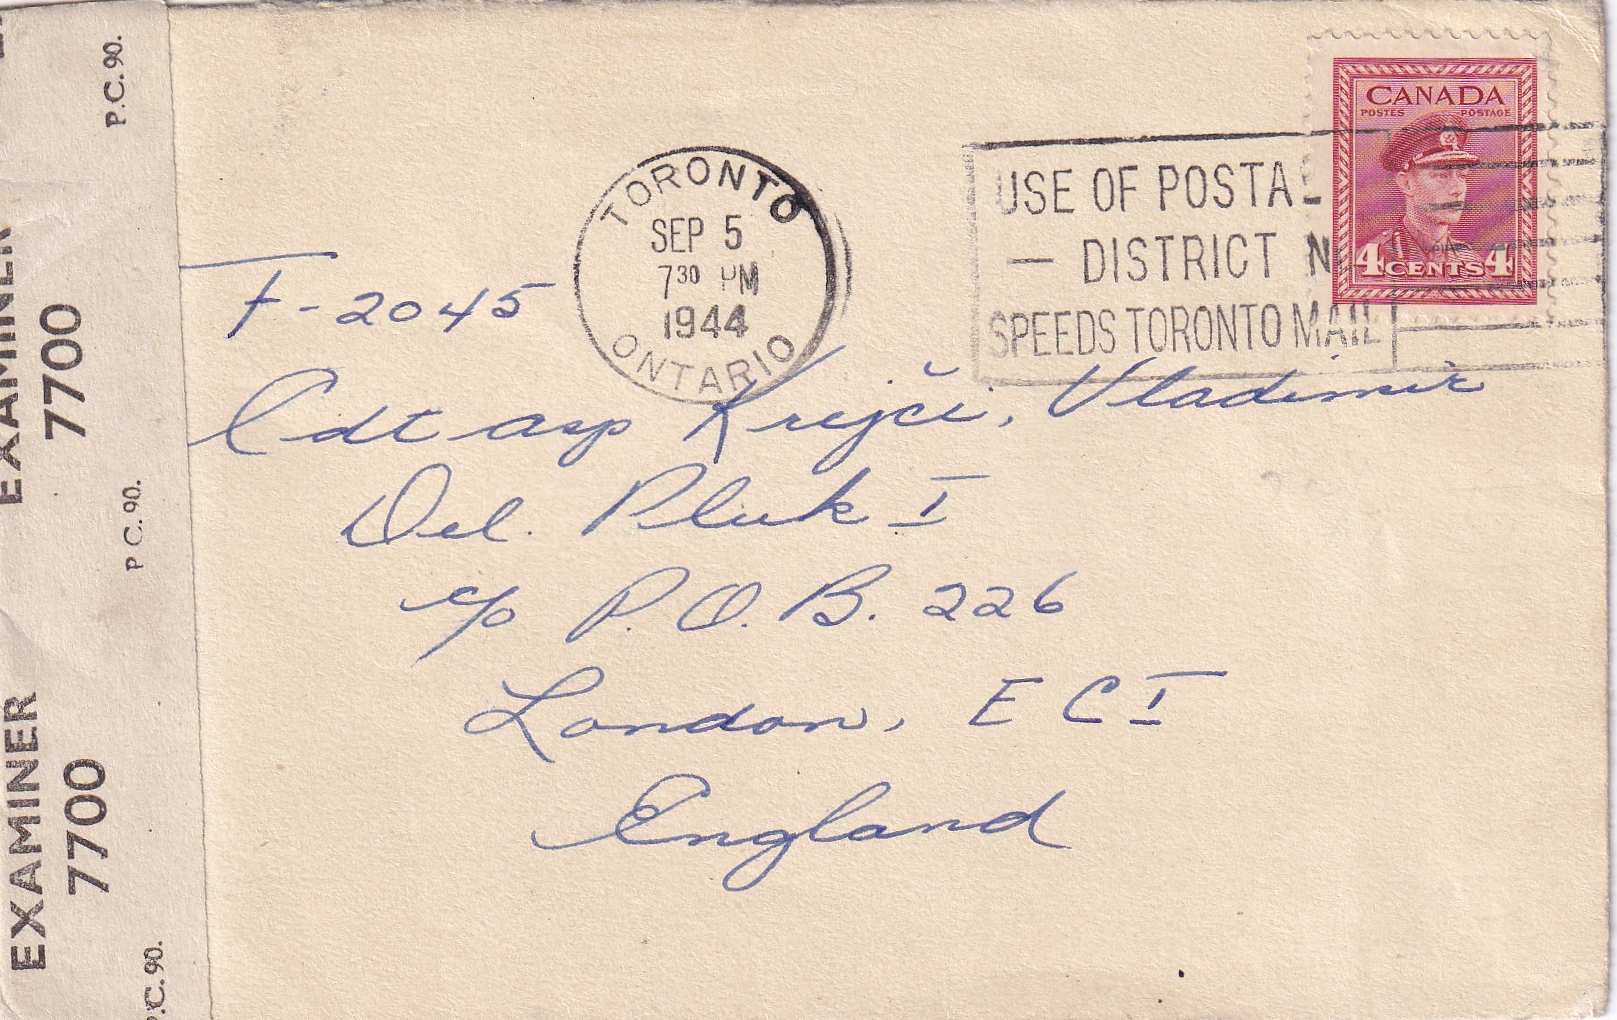 P.C. 90.
EXAMINER
7700
P C. 90.
EXAMINER
7700
P.C. 90.
TORONTO
SEP 5
7 30 PM
1944
ONTARIO
USE OF POSTAL
— DISTRICT N
SPEEDS TORONTO MAIL
CANADA
POSTES POSTAGE
4 CENTS 4
F-2045
Cdt asp Krejči, Vladimir
Del. Pluk I
c/o P.O.B. 226
London, E C I
England